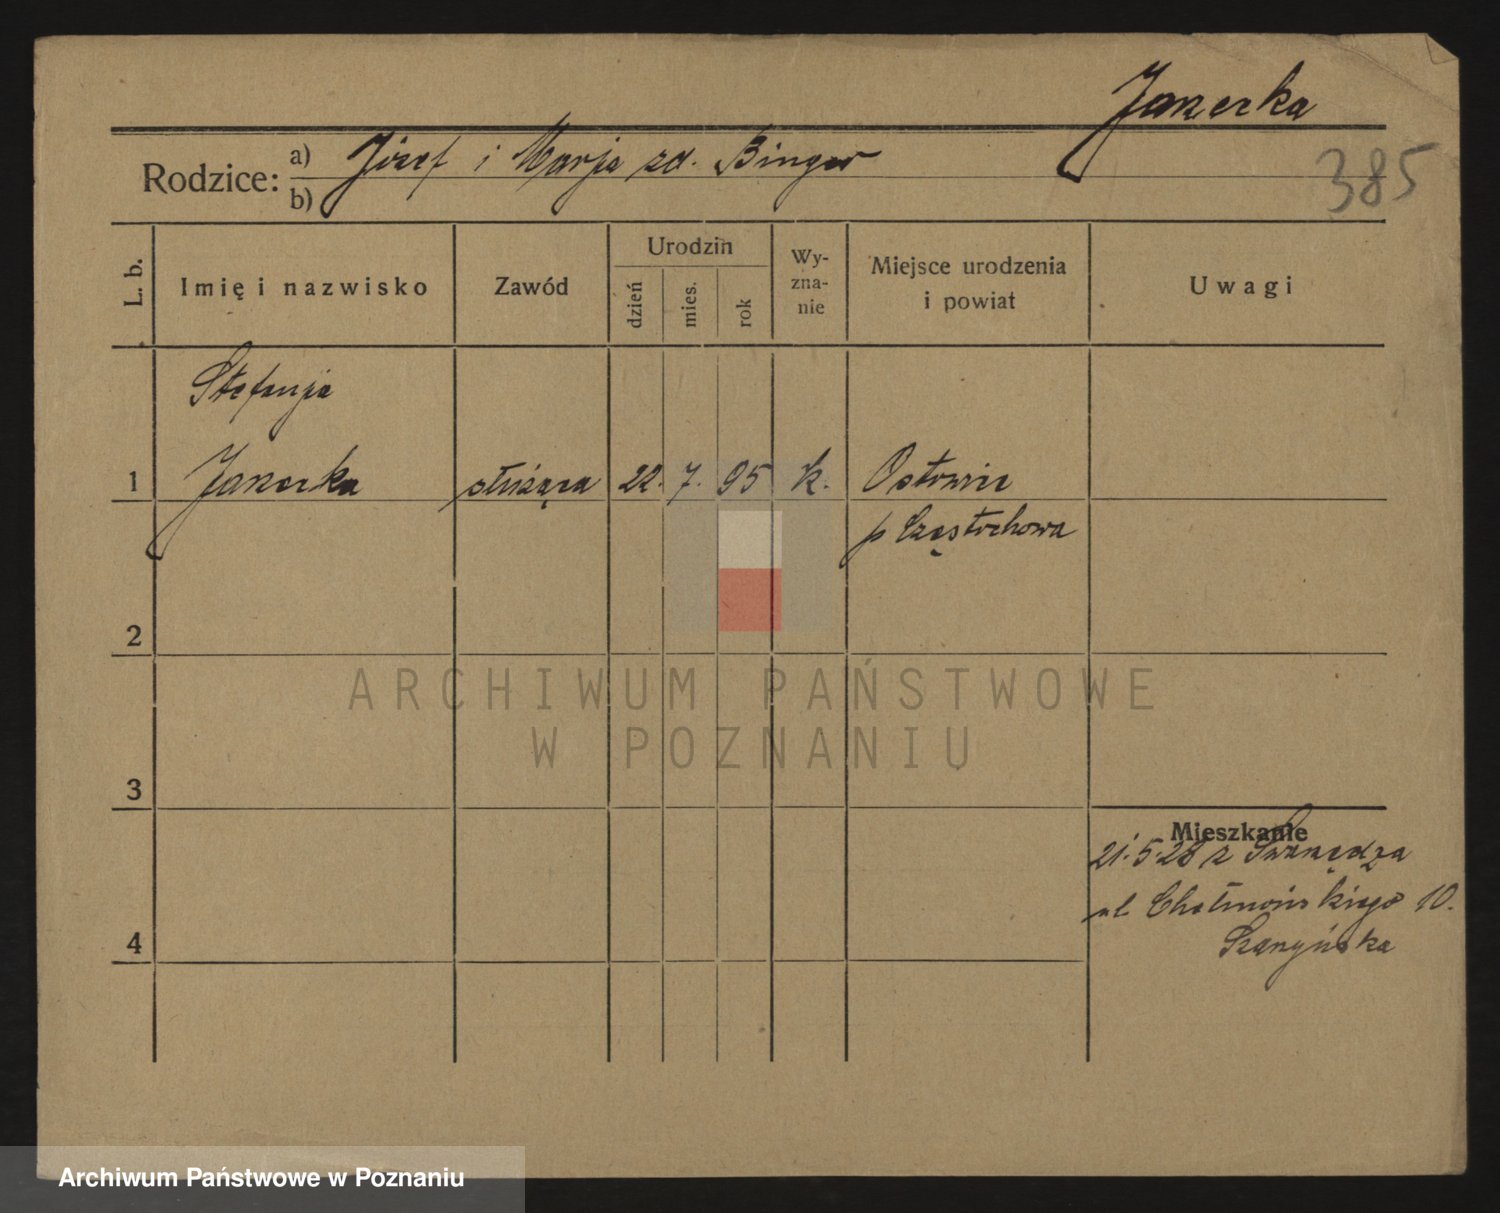 Janerka
385
Rodzice: a) Józef i Marja zd. Binger
b)
L. b. Imię i nazwisko Zawód Urodzin dzień mies. rok Wy-zna-nie Miejsce urodzenia i powiat Uwagi
Stefanja
1 Janerka służąca 22. 7. 95 k. Ostowie
p Częstochowa
2
ARCHIWUM PAŃSTWOWE
W POZNANIU
3
Mieszkanie
21.5.28 z Swarzędza
ul Chełmońskiego 10.
4
Archiwum Państwowe w Poznaniu